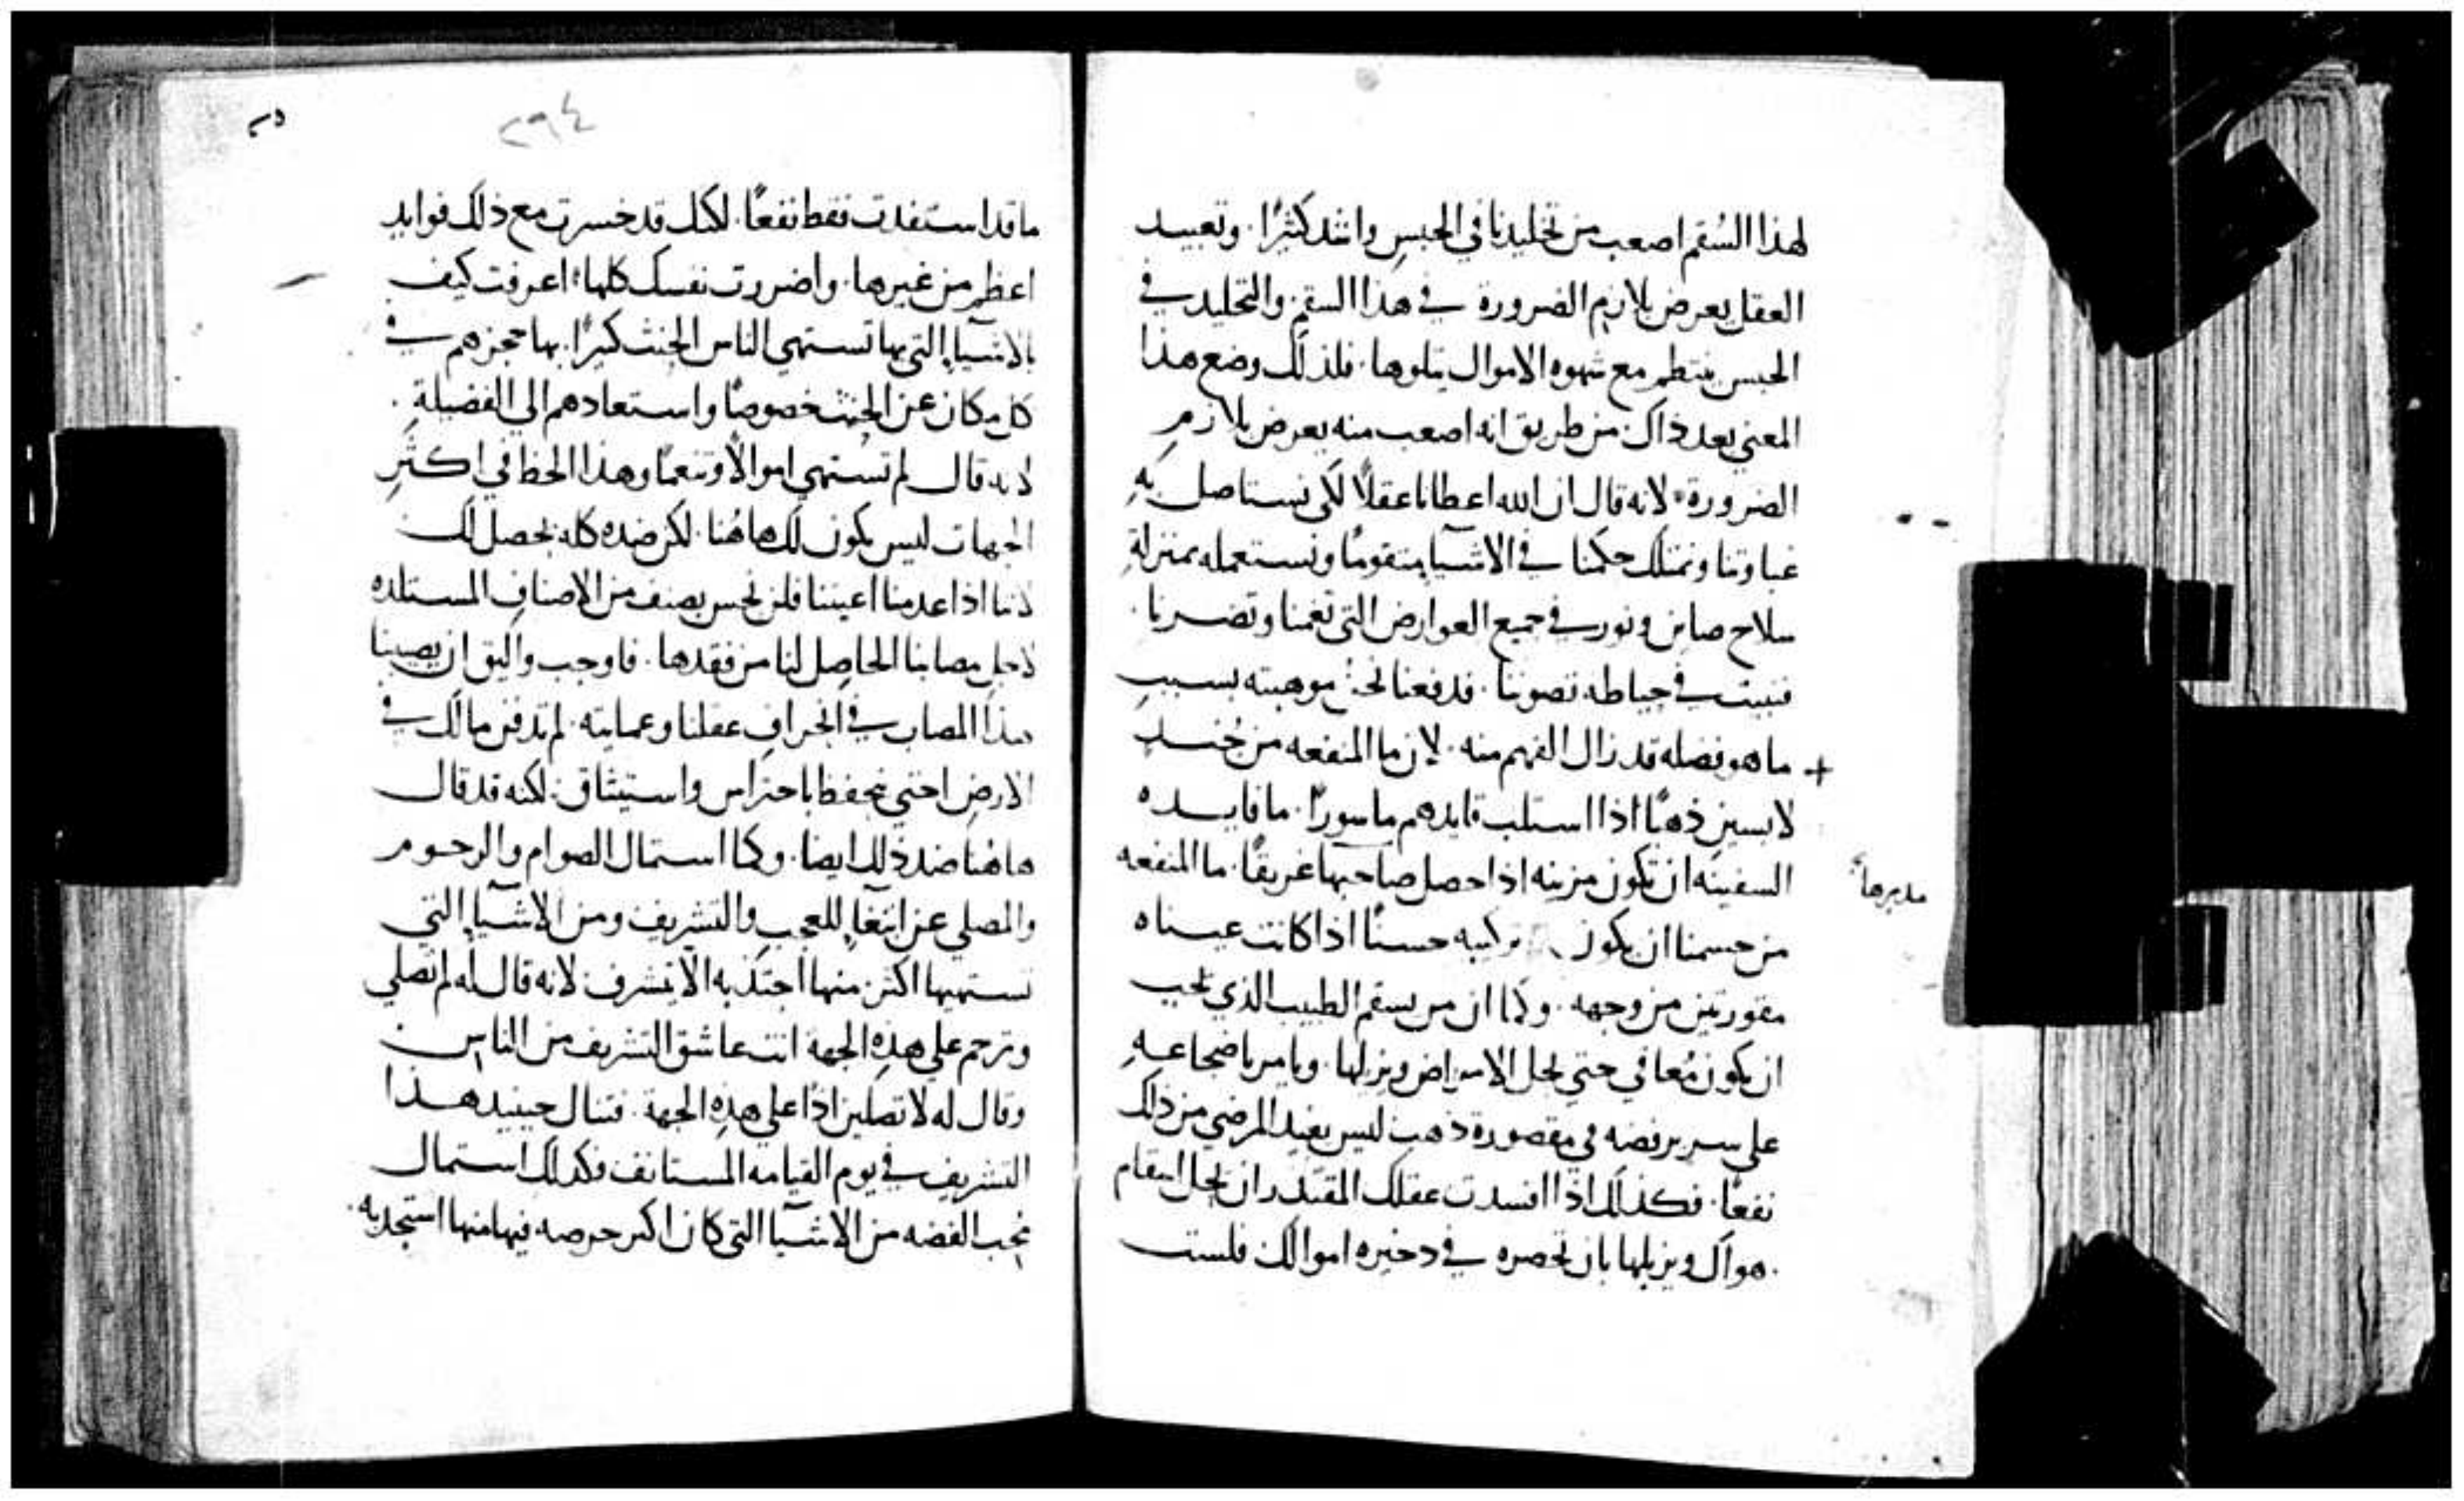 لهذا السُقم اصعب من تخليدنا في الحبس واشد كثيرًا. وتعبيد
العقل يعرض بلازم الضرورة في هذا السقم. والتخليد في
الحبس ينتظم مع شهوه الاموال يتلوها. فلذلك وضع هذا
المعني بعد ذاك. من طريق انه اصعب منه يعرض بلازم
الضرورة. لانه قال ان الله اعطانا عقلاً لكي نستاصل به
غباوتنا ونمتلك حكمنا في الاشيا متقومًا ونستعمله بمنزلة
سلاح صاين ونور في جميع العوارض التي تغمنا وتضرنا.
فنبيت في حياطه تصوننا. فدفعنا نحن موهبته بسبب
+ ما هو فضله قد زال الفهم منه. لان ما المنفعه من جُند
لابسين ذهبًا اذا استلب قايدهم ماسورًا. ما فايده
السفينه ان تكون مزينه اذا حصل صاحبها غريقًا. ما المنفعه
مدبرها
من جسمنا ان يكون تركيبه حسنًا اذا كانت عيناه
مقورتين من وجهه. وكما ان من يسقم الطبيب الذي يجب
ان يكون مُعافي حتي يحل الامراض ويزيلها. ويامر باضجاعه
علي سرير فضه في مقصورة ذهب ليس يفيد المرضي من ذلك
نفعًا. فكذلك اذا افسدت عقلك المقتدر ان يحل اسقام
هواك ويزيلها بان تحصره في دخيره اموالك فلست
٢٩٤
ما قد استفدت فقط نفعًا. لكنك قد خسرت مع ذلك فوايد
اعظم من غيرها. واضررت نفسك كلها. اعرفت كيف
بالاشيا التي بها تستهي الناس الخبث كثيرًا. بها حجزهم في
كل مكان عن الخبث خصوصًا واستعادهم الي الفضيلة.
لانه قال لم تستهي اموالاً وتنعمًا وهذا الحظ في اكثر
الجهات ليس يكون لك هاهُنا. لكن ضده كله يحصل لك
لاننا اذا عدمنا اعيننا فلن نحس بصنف من الاصناف المستلذه
لاجل مصابنا الحاصل لنا من فقدها. فاوجب واليق ان يصيبنا
هذا المصاب في انحراف عقلنا وعمايته. لم تدفن مالك في
الارض احتي يحفظ باحتراس واستيثاق. لكنه قد قال
هاهنا ضد ذلك ايضا. وكما استمال الصوام والرحوم
والمصلي عن ابتغا للعجب والتشريف ومن الاشيا التي
تستهيها اكثر منها اجتذبه الا يتشرف لانه قال له لم تصلي
وترحم علي هذه الجهة انت عاشق التشريف من الناس
وقال له لا تصلين اذًا علي هذه الجهة. فتنال حينيد هذا
التشريف في يوم القيامه المستانف فكذلك استمال
محب الفضه من الاشيا التي كان اكثر حرصه فيها منها استجذبه.